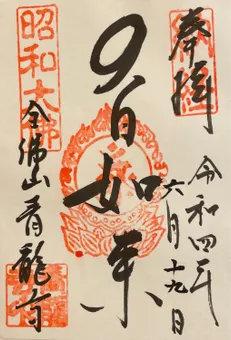 奉拝
令和四年
六月十九日
大日如来
昭和大佛
青龍寺